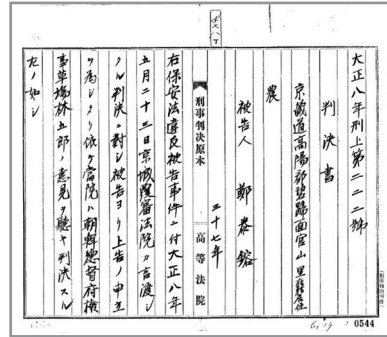 大正八年刑上第二二二號
判決書
京畿道高陽郡碧蹄面官山里居住
農
被告人 鄭泰鎔
三十七年
刑事判決原本
高等法院
右保安法違反被告事件ニ付大正八年
五月二十三日京城覆審法院カ言渡シ
タル判決ニ對シ被告ヨリ上告ノ申立
ヲ爲シタリ依テ當院ハ朝鮮總督府檢
事草場林五郎ノ意見ヲ聽キ判決スル
左ノ如シ
0544